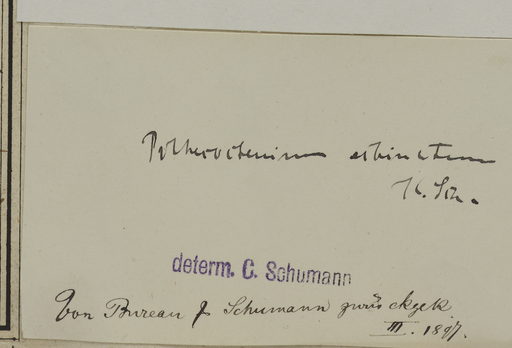 Pithecoctenium echinatum
K. Sch.
determ. C. Schumann
Von Bureau f Schumann zurückgek.
III. 1897.